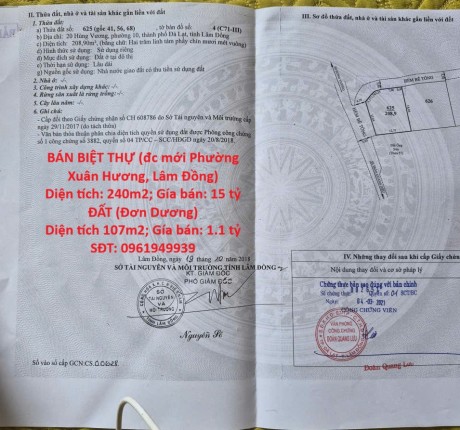 II. Thửa đất, nhà ở và tài sản khác gắn liền với đất
1. Thửa đất:
a) Thửa đất số: 625 (gốc 41, 56, 68) , tờ bản đồ số: 4 (C71-III)
b) Địa chỉ: 20 Hùng Vương, phường 10, thành phố Đà Lạt, tỉnh Lâm Đồng
c) Diện tích: 208,90m², (bằng chữ: Hai trăm linh tám phẩy chín mươi mét vuông)
d) Hình thức sử dụng: Sử dụng riêng
đ) Mục đích sử dụng: Đất ở tại đô thị
e) Thời hạn sử dụng: Lâu dài
g) Nguồn gốc sử dụng: Nhà nước giao đất có thu tiền sử dụng đất
2. Nhà ở: -/-
3. Công trình xây dựng khác: -/-
4. Rừng sản xuất là rừng trồng: -/-
5. Cây lâu năm: -/-
6. Ghi chú:
- Cấp đổi theo Giấy chứng nhận số CH 608786 do Sở Tài nguyên và Môi trường cấp
ngày 29/11/2017 (do tách thửa)
- Văn bản thỏa thuận phân chia diện tích quyền sử dụng đất được Phòng công chứng
số 1 công chứng số 3882, quyển số 04 TP/CC – SCC/HĐGD ngày 20/8/2018.
BÁN BIỆT THỰ (đc mới Phường
Xuân Hương, Lâm Đồng)
Diện tích: 240m2; Gía bán: 15 tỷ
ĐẤT (Đơn Dương)
Diện tích 107m2; Gía bán: 1.1 tỷ
SĐT: 0961949939
Lâm Đồng, ngày 19 tháng 10 năm 2018
SỞ TÀI NGUYÊN VÀ MÔI TRƯỜNG TỈNH LÂM ĐỒNG
KT. GIÁM ĐỐC
PHÓ GIÁM ĐỐC
SỞ
TÀI NGUYÊN
VÀ
MÔI TRƯỜNG
Số vào sổ cấp GCN:CS
III. Sơ đồ thửa đất, nhà ở và tài sản khác gắn liền với đất
HẺM BÊ TÔNG
625
208,9
626
IV. Những thay đổi sau khi cấp Giấy chứng
Nội dung thay đổi và cơ sở pháp lý
Chứng thực bản sao đúng với bản chính
CÔNG CHỨNG VIÊN
VĂN PHÒNG
CÔNG CHỨNG
ĐOÀN QUANG LƯU
Đoàn Quang Lưu